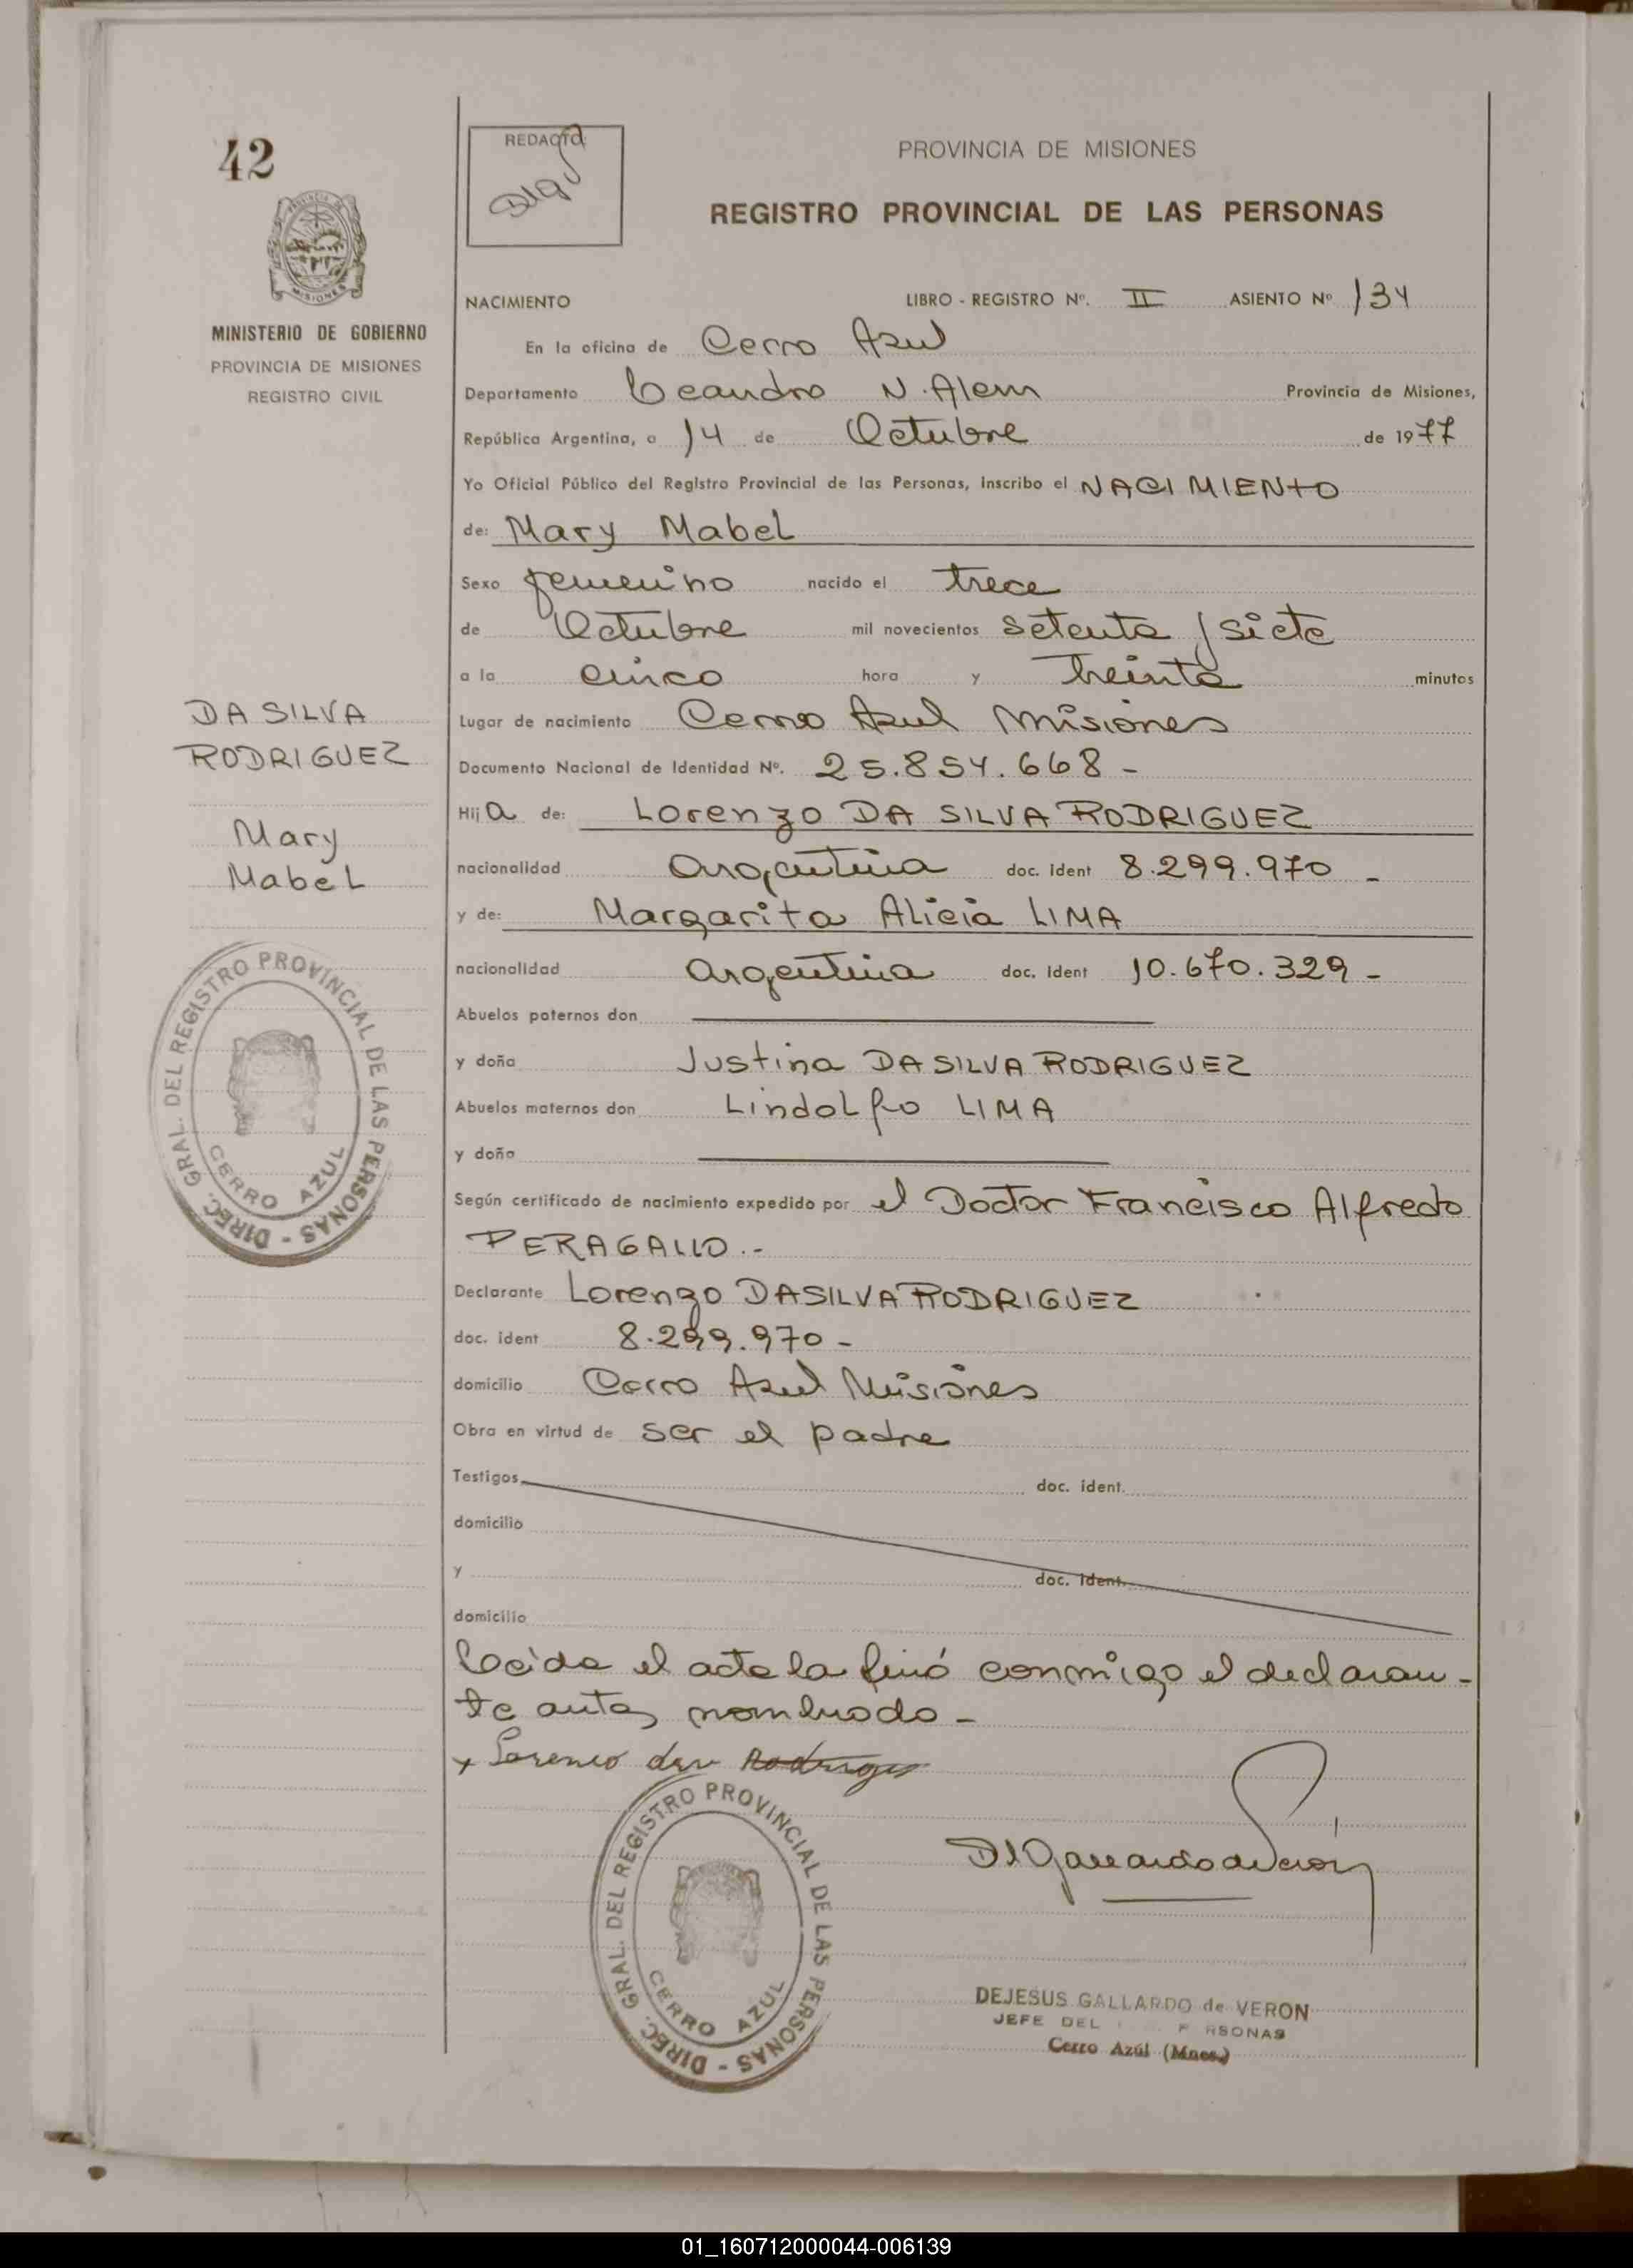 42
REDACTO:
PROVINCIA DE MISIONES
REGISTRO PROVINCIAL DE LAS PERSONAS
MISIONES
MINISTERIO DE GOBIERNO
PROVINCIA DE MISIONES
REGISTRO CIVIL
NACIMIENTO LIBRO - REGISTRO Nº. II ASIENTO Nº 134
En la oficina de Cerro Azul
Departamento Leandro N. Alem Provincia de Misiones,
República Argentina, a 14 de Octubre de 1977
Yo Oficial Público del Registro Provincial de las Personas, inscribo el NACIMIENTO
de: Mary Mabel
Sexo femenino nacido el trece
de Octubre mil novecientos setenta y siete
a la cinco hora y treinta minutos
Lugar de nacimiento Cerro Azul Misiones
Documento Nacional de Identidad Nº. 25.854.668 -
Hija de: Lorenzo DA SILVA RODRIGUEZ
nacionalidad argentina doc. ident 8.299.970 -
y de: Margarita Alicia LIMA
nacionalidad argentina doc. ident 10.670.329 -
Abuelos paternos don
y doña Justina DA SILVA RODRIGUEZ
Abuelos maternos don Lindolfo LIMA
y doña
Según certificado de nacimiento expedido por el Doctor Francisco Alfredo
PERAGALLO.-
Declarante Lorenzo DA SILVA RODRIGUEZ
doc. ident 8.299.970 -
domicilio Cerro Azul Misiones
Obra en virtud de ser el padre
Testigos doc. ident.
domicilio
y doc. ident.
domicilio
Leida el acta la firmó conmigo el declaran-
te antes nombrado -
DA SILVA
RODRIGUEZ
Mary
Mabel
DIREC. GRAL. DEL REGISTRO PROVINCIAL DE LAS PERSONAS -
CERRO AZUL
DIREC. GRAL. DEL REGISTRO PROVINCIAL DE LAS PERSONAS -
CERRO AZUL
DEJESUS GALLARDO de VERON
JEFE DEL
Cerro Azúl (Mnes.)
01_160712000044-006139